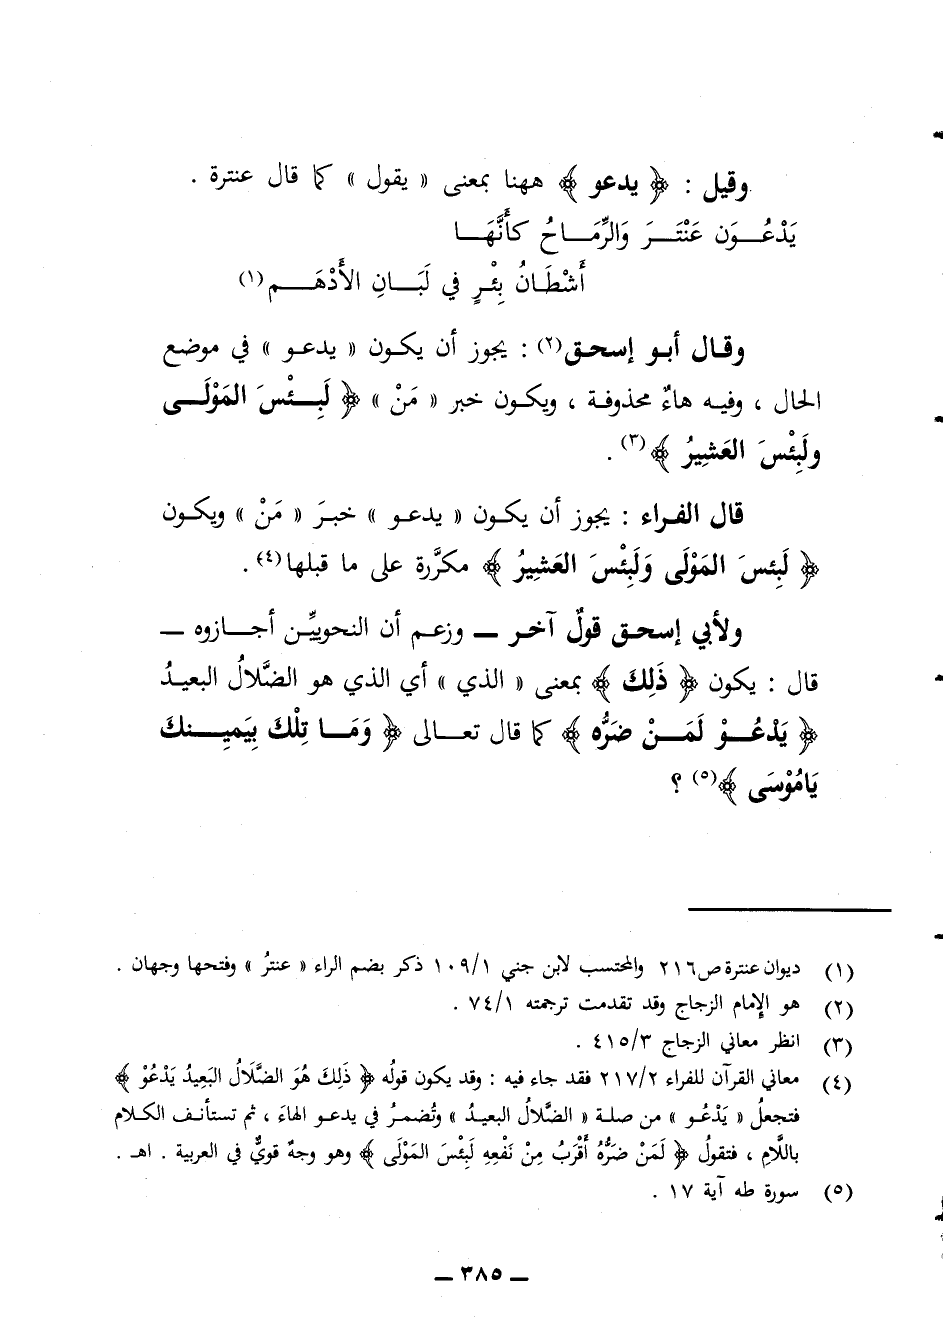 وقيل : ﴿ يدعو ﴾ ههنا بمعنى « يقول » كما قال عنترة .
يَدْعُــون عَنْتَــرَ وَالرِّمَــاحُ كأَنَّهَــا
أَشْطَـانُ بِئْـرٍ في لَبَــانِ الأَدْهَــمِ(١)
وقال أبو إسحق(٢) : يجوز أن يكون « يدعو » في موضع
الحال ، وفيه هاءٌ محذوفة ، ويكون خبر « مَنْ » ﴿ لَبِئْسَ المَوْلَى
ولَبِئْسَ العَشِيرُ ﴾(٣) .
قال الفراء : يجوز أن يكون « يدعو » خبرَ « مَنْ » ويكون
﴿ لَبئسَ المَوْلَى وَلَبِئْسَ العَشِيرُ ﴾ مكرَّرة على ما قبلها(٤) .
ولأبي إسحق قولٌ آخر ــ وزعم أن النحويِّين أجازوه ــ
قال : يكون ﴿ ذَلِكَ ﴾ بمعنى « الذي » أي الذي هو الضَّلالُ البعيدُ
﴿ يَدْعُــوْ لَمَــنْ ضَرُّه ﴾ كما قال تعالى ﴿ وَمَـا تِلْكَ بِيَمِينكَ
يَامُوْسَى ﴾(٥) ؟
(١) ديوان عنترة ص٢١٦ والمحتسب لابن جني ١٠٩/١ ذكر بضم الراء « عنترُ » وفتحها وجهان .
(٢) هو الإمام الزجاج وقد تقدمت ترجمته ٧٤/١ .
(٣) انظر معاني الزجاج ٤١٥/٣ .
(٤) معاني القرآن للفراء ٢١٧/٢ فقد جاء فيه : وقد يكون قولُه ﴿ ذَلِكَ هُوَ الضَّلَالُ البَعِيدُ يَدْعُوْ ﴾
فتجعلُ « يَدْعُو » من صلة « الضَّلالُ البعيدُ » وتُضمرُ في يدعو الهاءَ ، ثم تستأنف الكلام
باللَّامِ ، فتقولُ ﴿ لَمَنْ ضَرُّهُ أَقْرَبُ مِنْ نَفْعِهِ لَبِئْسَ المَوْلَى ﴾ وهو وجهٌ قويٌّ في العربية . اهـ .
(٥) سورة طه آية ١٧ .
ــ ٣٨٥ ــ